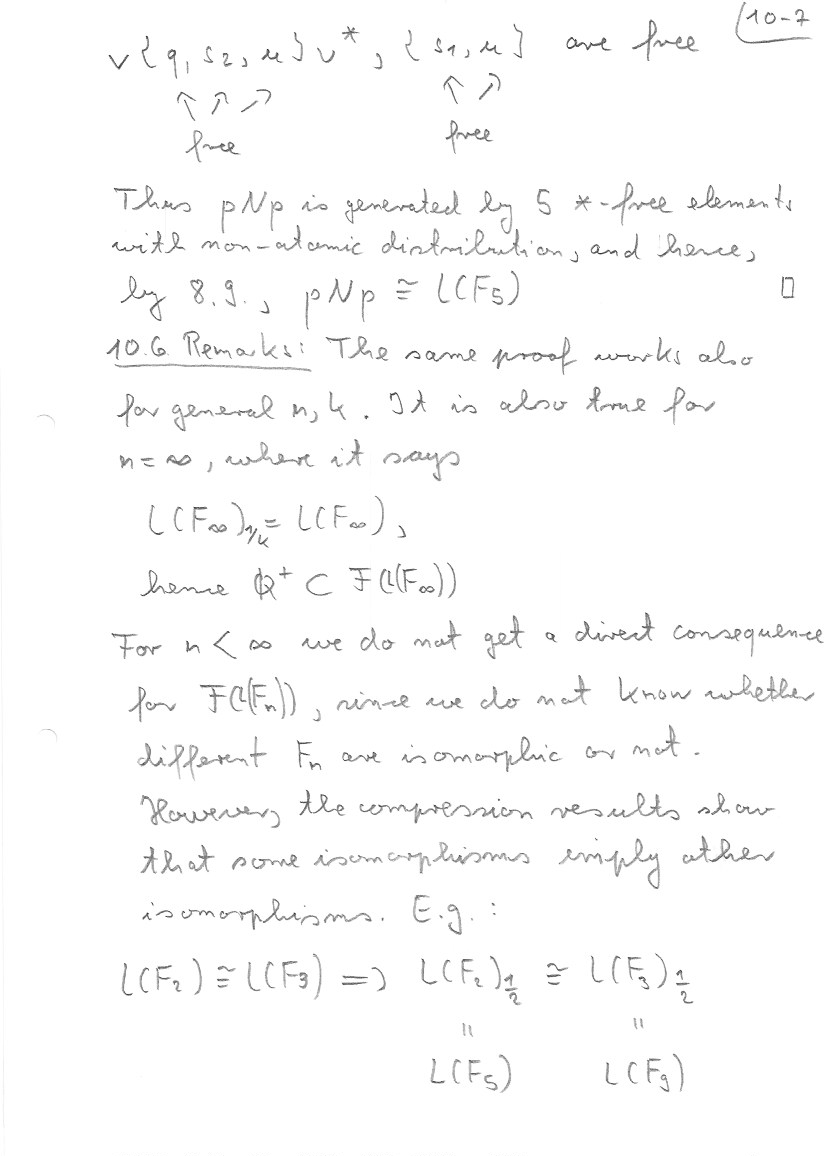 10-7
v{q, s₂, u}v*, {s₁, u} are free
↑ ↑ ↑ ↑ ↑
free free
Thus pNp is generated by 5 *-free elements
with non-atomic distribution, and hence,
by 8.9., pNp ≅ L(F₅) □
10.6 Remarks: The same proof works also
for general n, k. It is also true for
n = ∞, where it says
L(F∞)₁/ₖ = L(F∞),
hence ℚ⁺ ⊂ F(L(F∞))
For n < ∞ we do not get a direct consequence
for F(L(Fₙ)), since we do not know whether
different Fₙ are isomorphic or not.
However, the compression results show
that some isomorphisms imply other
isomorphisms. E.g.:
L(F₂) ≅ L(F₃) => L(F₂)½ ≅ L(F₃)½
= =
L(F₅) L(F₉)